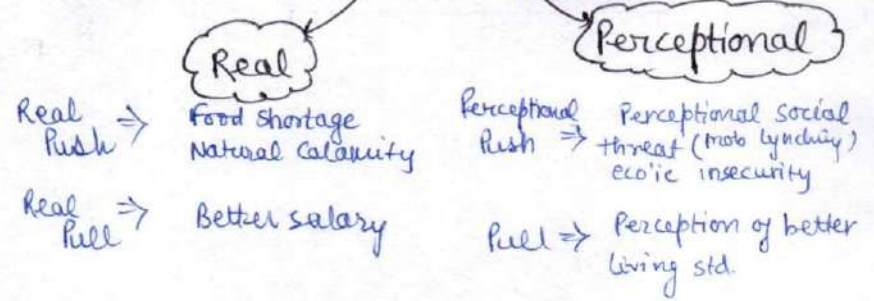 Real
Perceptional
Real Push ⇒ Food Shortage
Natural Calamity
Real Pull ⇒ Better salary
Perceptional Push ⇒ Perceptional social
threat (mob lynching)
eco'ic insecurity
Pull ⇒ Perception of better
living std.